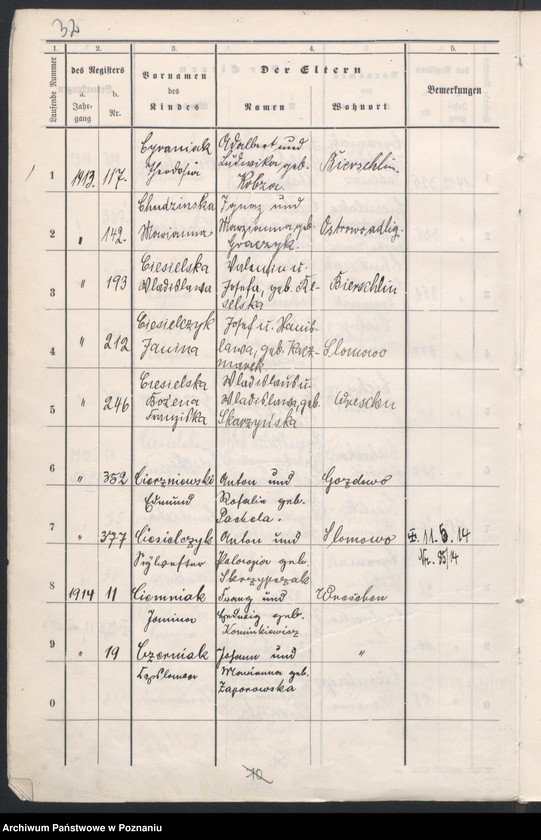 32
1. 2. 3. 4. 5.
Laufende Nummer
des Registers
a. Jahr-gang
b. Nr.
Vornamen des Kindes
Der Eltern
Namen
Wohnort
Bemerkungen
Cyraniak Adalbert und
Theodosia Ludowika geb. Bierschlin
1 1913. 117. Kobza
Chudzinska Ignaz und
2 " 142. Marianna Marzianna geb. Ostrowo, adlig.
Graczyk.
Ciesielska Valentin u.
3 " 193 Wladislawa Josefa, geb. Ke- Bierschlin
selska
Ciesielczyk Josef u. Stanis-
4 " 212 Janina lawa, geb. Kacz- Slomowo
marek
Ciesielska Wladislaus u.
5 " 246 Bożena Wladislawa, geb. Wreschen
Franziska Skarzyńska
6 " 352 Cierzniewski Anton und Gozdowo
Edmund Rosalie geb.
Pachela.
7 " 377 Ciesielczyk Anton und Slomowo 11. 5. 14
Sylwester Pelagia geb. Nr. 95/14
Skrzypczak
8 1914 11 Ciemniak Franz und Wreschen
Janina Hedwig geb.
Kominkiewicz
9 " 19 Czerniak Johann und "
Marianna geb.
Zaporowska
0
10
Archiwum Państwowe w Poznaniu